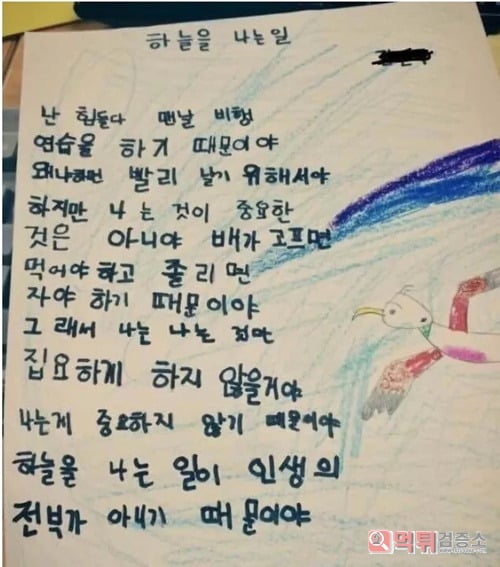 하늘을 나는일
난 힘들다 맨날 비행
연습을 하기 때문이야
왜냐하면 빨리 날기 위해서야
하지만 나는 것이 중요한
것은 아니야 배가 고프면
먹어야하고 졸리면
자야 하기 때문이야
그래서 나는 나는 것만
집요하게 하지 않을거야
나는게 중요하지 않기 때문이야
하늘을 나는 일이 인생의
전부가 아니기 때문이야
먹튀검증소